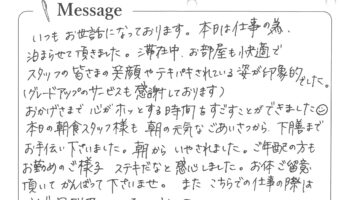 Message
いつもお世話になっております。本日は仕事の為、
泊まらせて頂きました。滞在中、お部屋も快適で
スタッフの皆さまの笑顔やテキパキされている姿が印象的でした。
(グレードアップのサービスも感謝しております)
おかげさまで心がホッとする時間をすごすことができました☺
本日の朝食スタッフ様も朝の元気なごあいさつから、下膳まで
お手伝い下さいました。朝からいやされました。ご年配の方も
お勤めのご様子 ステキだなと感心しました。お体ご留意
頂いてがんばって下さいませ。また こちらでの仕事の際は